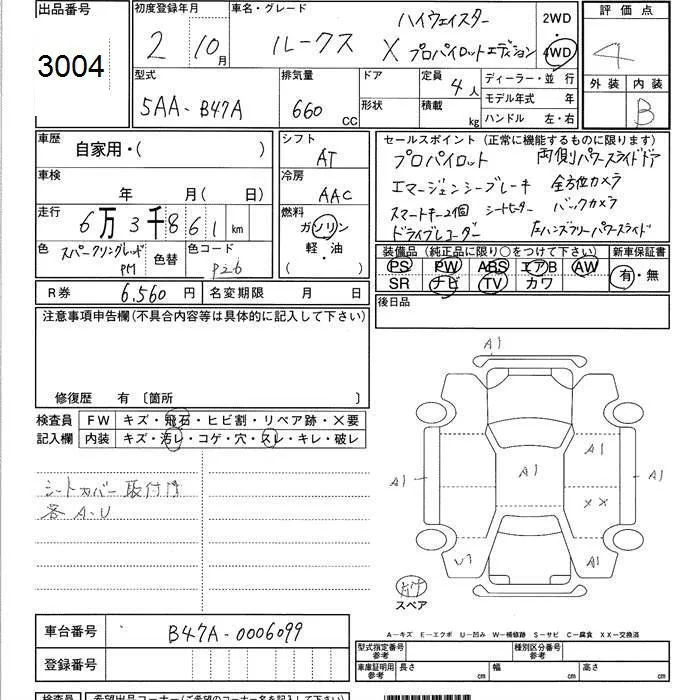 出品番号 初度登録年月 車名・グレード 評価点
3004
2 10月
ルークス ハイウェイスター
X プロパイロットエディション
2WD・4WD
4
型式 排気量 ドア 定員 4人 ディーラー・並 行
外装 内装
5AA-B47A 660 CC 形状 積載 kg モデル年式 年
ハンドル 左・右
B
車歴 自家用・( )
シフト AT
セールスポイント (正常に機能するものに限ります)
プロパイロット 両側パワースライドドア
車検 年 月( 日)
冷房 AAC
エマージェンシーブレーキ 全方位カメラ
走行 6万3千861km
スマートキー2個 シートヒーター バックカメラ
燃料 ガソリン
軽・油
( )
ドライブレコーダー 左ハンズフリーパワースライド
色 スパークリングレッドPM 色替 色コード
装備品 (純正品に限り○をつけて下さい) 新車保証書
PS PW ABS エアB AW
有・無
SR ナビ TV カワ
R券 6,560円 名変期限 月 日
後日品
注意事項申告欄(不具合内容等は具体的に記入して下さい)
修復歴 有 〔箇所 〕
検査員 FW キズ・飛石・ヒビ割・リペア跡・×要
記入欄 内装 キズ・汚レ・コゲ・穴・スレ・キレ・破レ
シートカバー取付け
各A・U
A1
A1
A1
A1
A1
××
A1
スペア
A-キズ E-エクボ U-凹み W-補修跡 S-サビ C-腐食 XX-交換済
車台番号 B47A-0006099
型式指定番号 参考 種別区分番号 参考
登録番号
車庫証明用 参考 長さ cm 幅 cm 高さ cm
検査員 希望出品コーナー(ご希望のコーナー名を記入下さい)